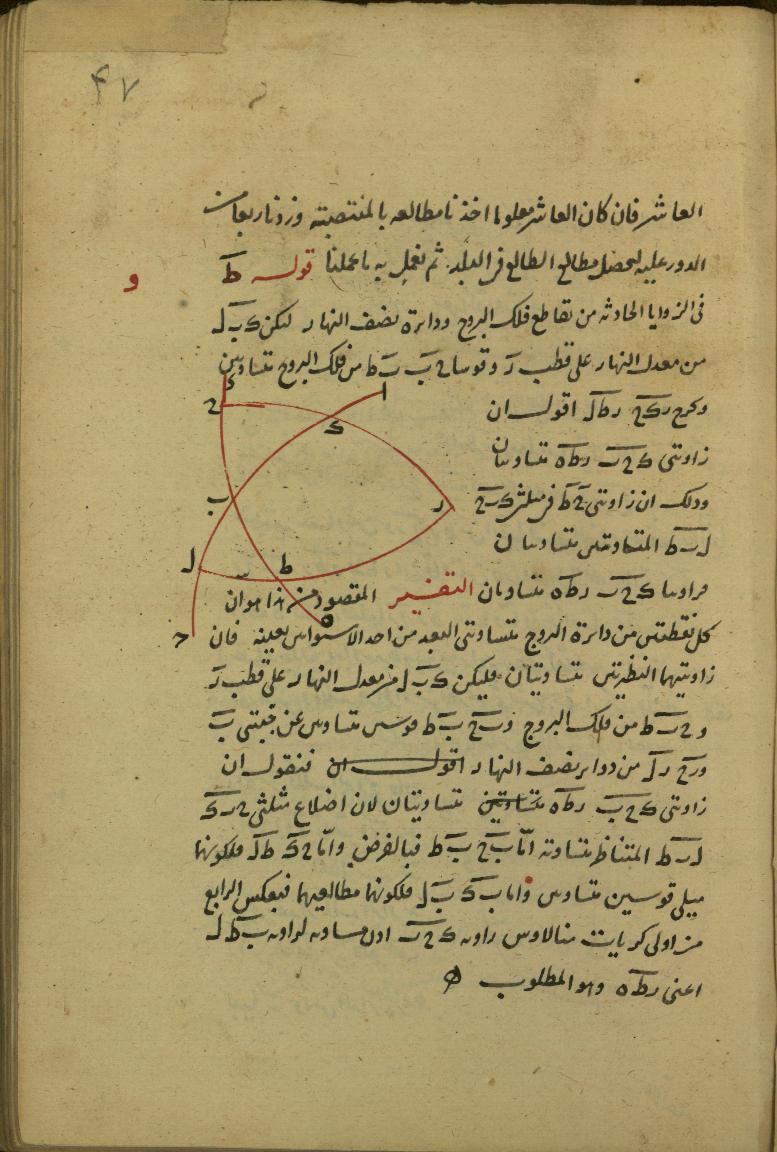 ٤٧
العاشر فان كان العاشر معلوما اخذنا مطالعه بالمنتصبة وزدنا ربعا من
الدور عليه ليحصل مطالع الطالع فى البلد ثم نعمل به ما عملنا قوله ط
و
فى الزوايا الحادثة من تقاطع فلك البروج ودائرة نصف النهار ليكن ك ب ل
من معدل النهار على قطب ر وقوسا ح ب ب ط من فلك البروج متساويين
ونخرج ر ك ح ر ط ل اقول ان
زاويتى ك ح ب ر ط ه متساويتان
وذلك ان زاويتى ح ط فى مثلثى ك ب ح
ل ب ط المتساويتين متساويتان
فزاويتا ك ح ب ر ط ه متساويتان التفسير المقصود من هذا هو ان
كل نقطتين من دايرة البروج متساوتى البعد من احد الاستوايين بعينه فان
زاويتيهما النظيرتين متساويتان فليكن ك ب ل من معدل النهار على قطب ر
و ح ب ط من فلك البروج و ب ح ب ط قوسين متساويين عن جنبتى ب
و ر ح ر ل من دواير نصف النهار اقول ان فنقول ان
زاويتى ك ح ب ر ط ه متساويتين متساويتان لان اضلاع مثلثى ح ب ك
ل ب ط المتناظرة متساوية اما ب ح ب ط فبالفرض واما ح ك ط ل فلكونهما
ميلى قوسين متساويين واما ب ك ب ل فلكونهما مطالعيهما فبعكس الرابع
من اولى كريات منالاوس زاوية ك ح ب اذن مساوية لزاوية ب ط ل
اعنى ر ط ه وهو المطلوب
ا
ح
ك
ب
ر
ل
ط
ه